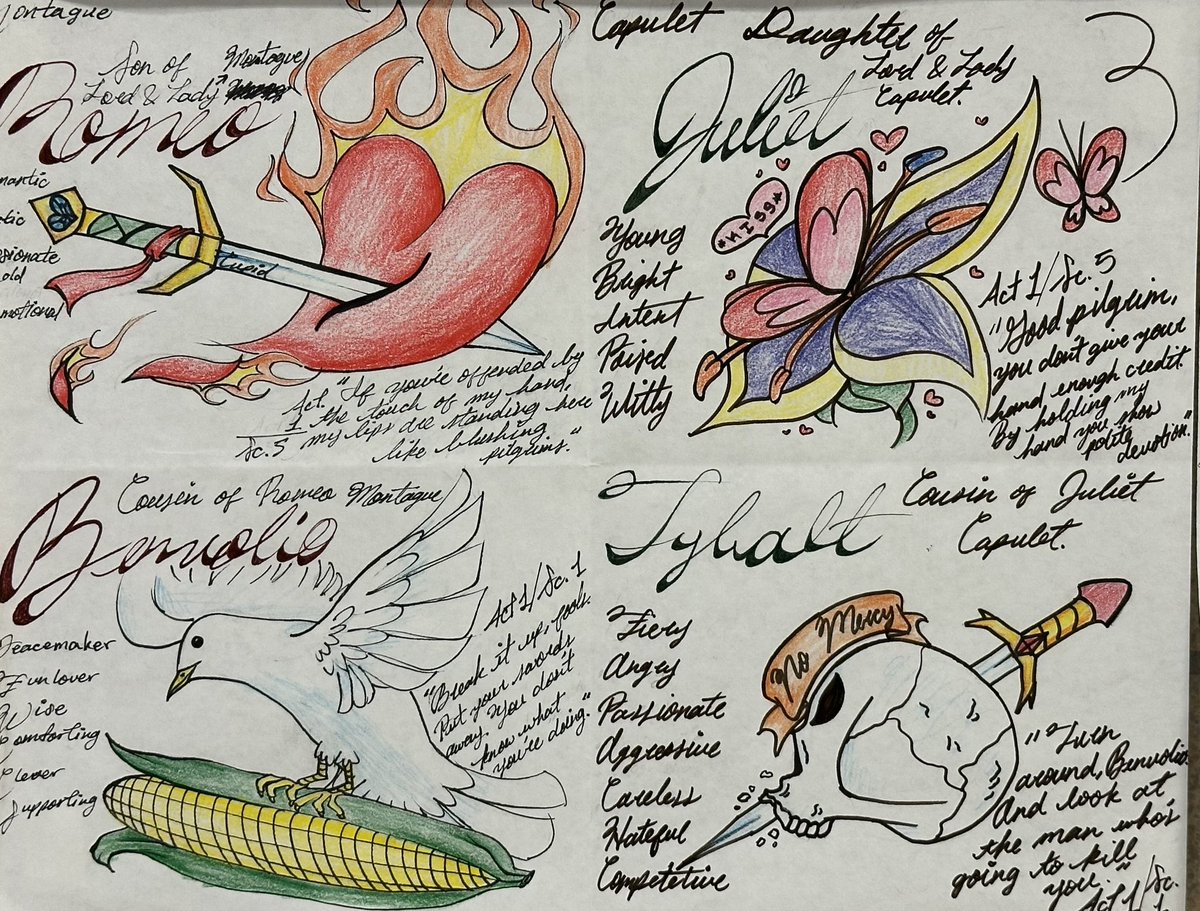 Montague
Son of
Lord & Lady Montague
Romeo
mantic
ssionate
old
motional
Cupid
Act
1
Sc. 5
"If you're offended by
the touch of my hand,
my lips are standing here
like blushing
pilgrims."
Capulet
Daughter of
Lord & Lady
Capulet.
Juliet
Young
Bright
Intent
Poised
Witty
*KISS*
Act 1/Sc. 5
"Good pilgrim,
you don't give your
hand enough credit.
By holding my
hand you show
polite
devotion."
Cousin of Romeo Montague
Benvolio
Peacemaker
Fun lover
Wise
Comforting
Clever
Supporting
Act 1/Sc. 1
"Break it up, fools.
Put your swords
away. You don't
know what
you're doing."
Tybalt
Cousin of Juliet
Capulet.
Fiery
Angry
Passionate
Aggressive
Careless
Hateful
Competetive
No Mercy
"Turn
around, Benvolio
And look at
the man who's
going to kill
you."
Act 1/Sc.
1